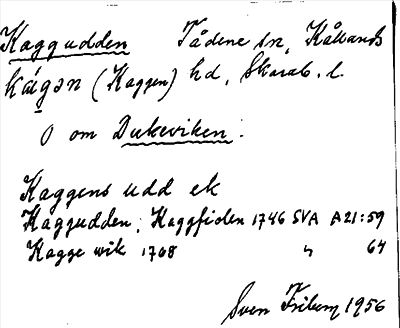 Kaggudden Tådene sn, Kållands
kágən (Kaggen) hd, Skarab. l.
O om Dukeviken.
Kaggens udd ek
Kaggudden, Kaggfiden 1746 SVA A21:59
Kagge wik 1708 " 64
Sven Friberg 1956